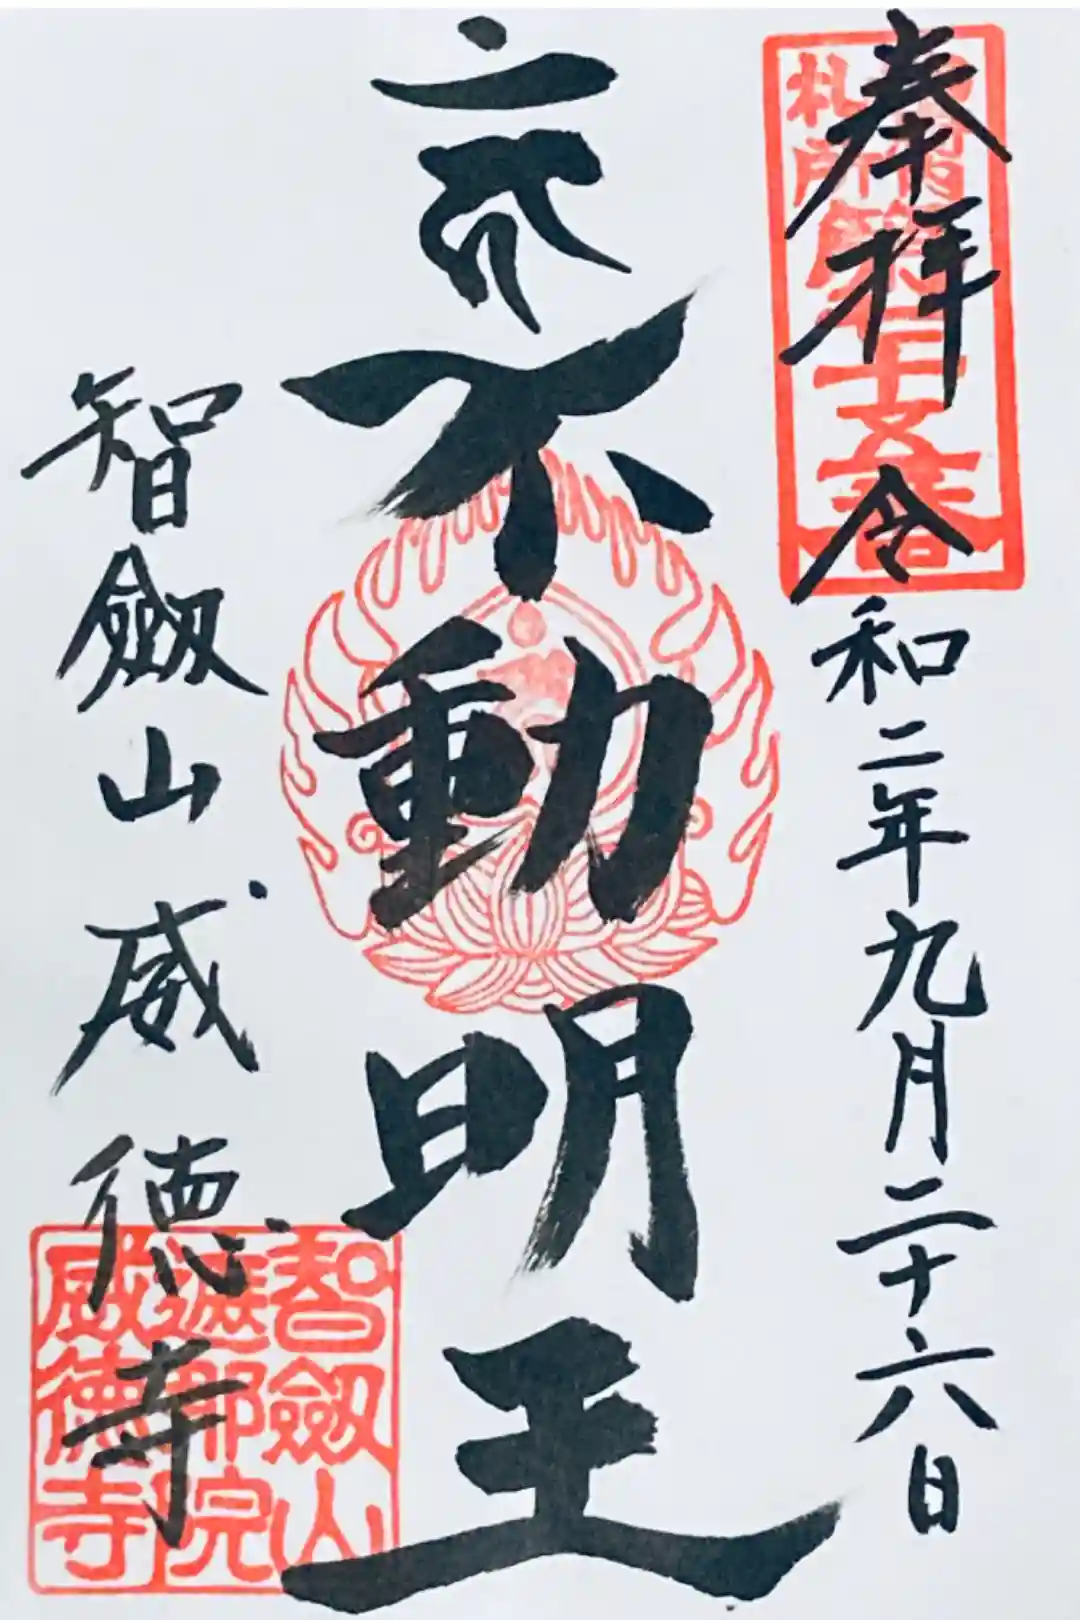 奉拝
令和二年九月二十六日
不動明王
智劔山威徳寺
札所
第
十五番
智劔山
遮那院
威徳寺